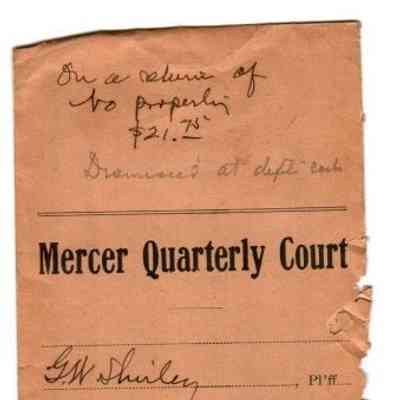 On a return of
No property
$21.75
Dismissed at deft cost
Mercer Quarterly Court
G.W Shirley, Pl'ff